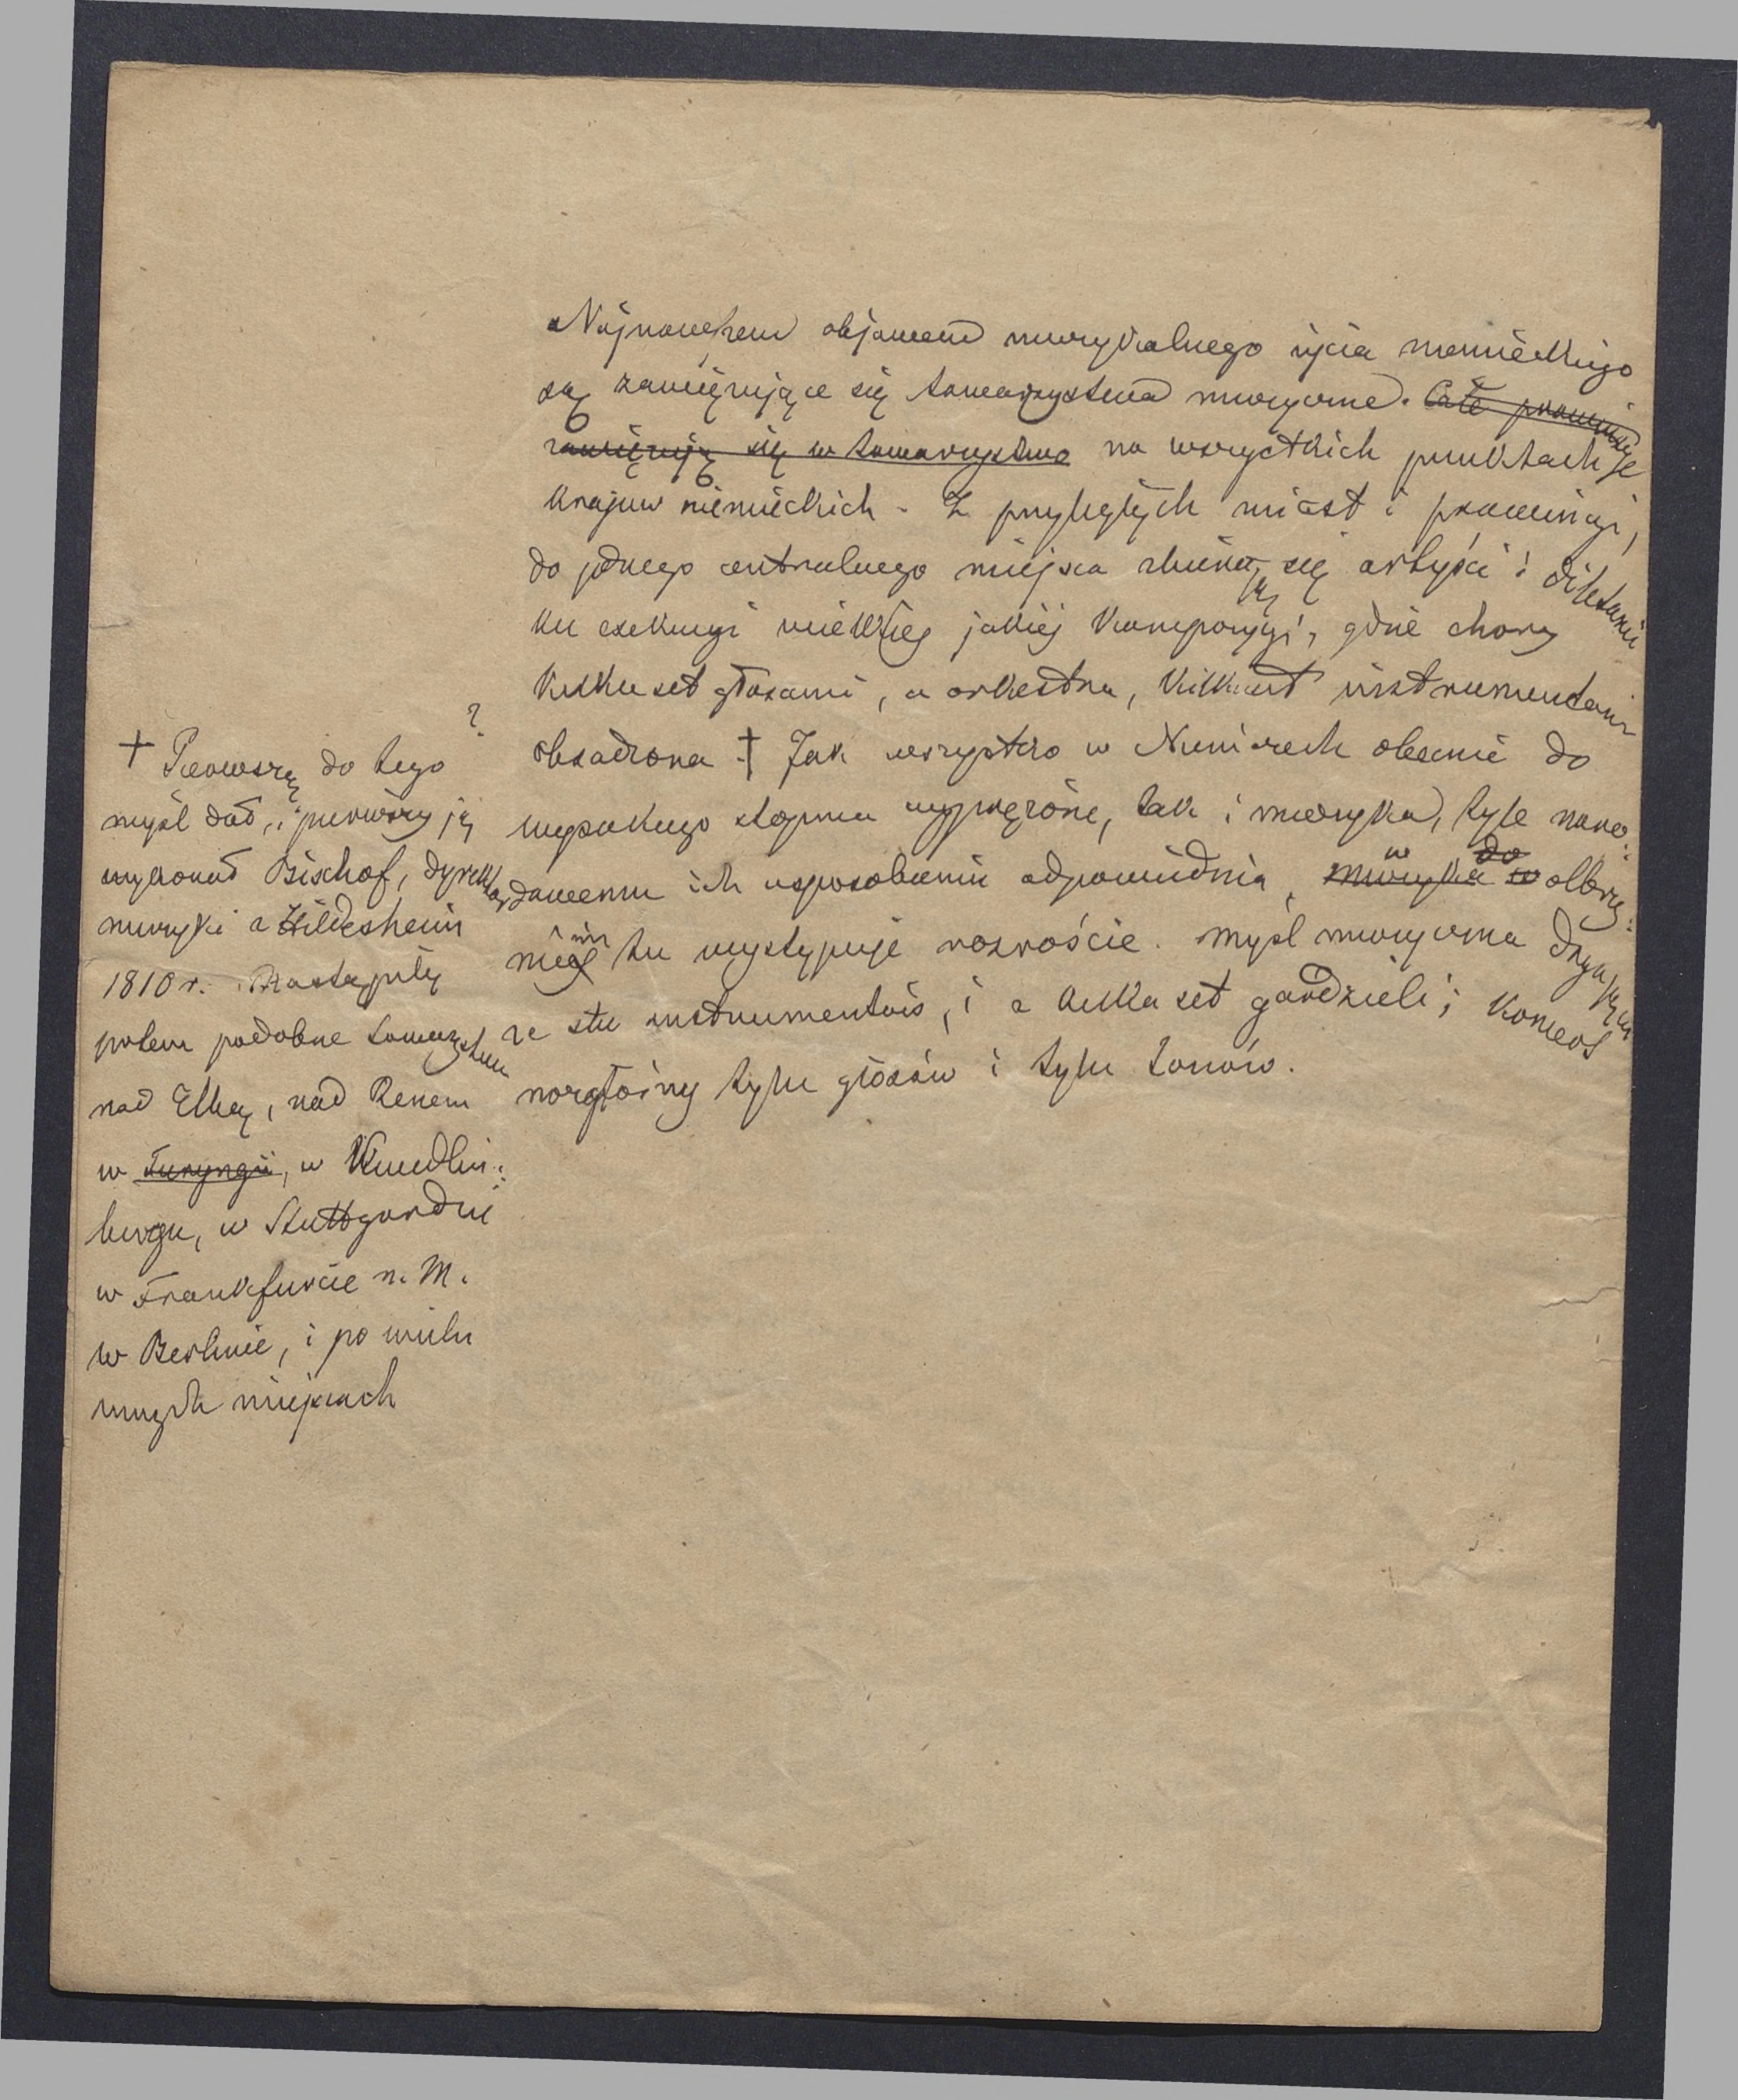 Najnowszem objawem muzykalnego życia niemieckiego
są zawięzujące się towarzystwa muzyczne. Całe prowincje
zawięzują się w towarzystwa na wszystkich punktach
krajów niemieckich. Z przyległych miast i prowincyi,
do jednego centralnego miejsca zbierają się artyści i diletanci
ku exekucyi wielkiej jakiej kompozycyi, gdzie chory
kilkuset głosami, a orkestra, kilkuset instrumentami
obsadzona † Jak wszystko w Niemczech obecnie do
wysokiego stopnia wyprężone, tak i muzyka, tyle naro:
dowemu ich usposobieniu odpowiednia, muzyka w do w olbrzy:
mim tu występuje rozroście. Myśl muzyczna drga
ze stu instrumentów, i z kilka set gardzieli; koncert
rozgłośny tylu głosów i tylu tonów.
† Pierwszą do tego ?
myśl dał, i pierwszy ją
wykonał Bischof, dyrektor
muzyki z Hildesheim
1810 r. Nastąpiły
potem podobne towarzystwa
nad Elbą, nad Renem
w Turyngii, w Kwedlin:
burgu, w Stuttgardzie
w Frankfurcie n. M.
w Berlinie, i po wielu
innych miejscach